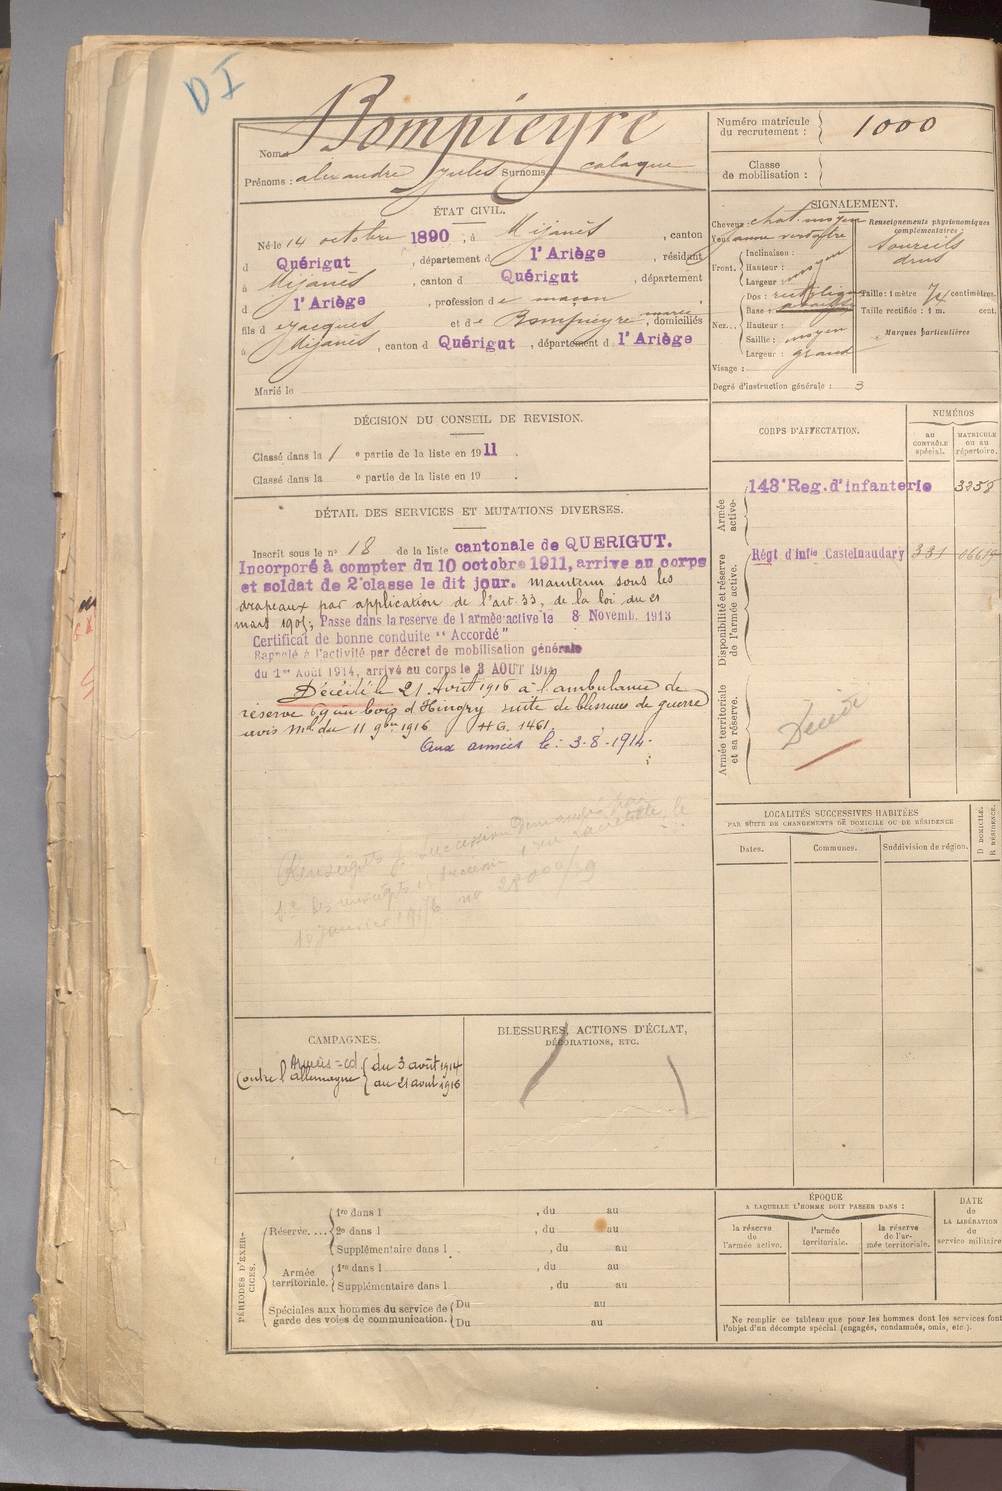 D I
Nom : Bompieyre
Prénoms : alexandre Jules Surnoms : calaque
Numéro matricule
du recrutement : 1000
Classe
de mobilisation :
ÉTAT CIVIL.
Né le 14 octobre 1890, à Mijanès, canton
d Quérigut, département d l'Ariège, résidant
à Mijanès, canton d Quérigut, département
d l'Ariège, profession de maçon
fils d Jacques et de Bompieyre marie, domiciliés
à Mijanès, canton d Quérigut, département d l'Ariège
Marié le
SIGNALEMENT.
Cheveux : chat. moyen
Yeux jaune verdâtre
Front. Inclinaison :
Hauteur : moyen
Largeur :
Nez... Dos : rectiligne
Base :
Hauteur :
Saillie : moyen
Largeur : grand
Visage :
Degré d'instruction générale : 3
Renseignements physionomiques
complémentaires :
sourcils
drus
Taille : 1 mètre 74 centimètres.
Taille rectifiée : 1 m. cent.
Marques particulières
DÉCISION DU CONSEIL DE REVISION.
Classé dans la 1 e partie de la liste en 1911.
Classé dans la e partie de la liste en 19 .
DÉTAIL DES SERVICES ET MUTATIONS DIVERSES.
Inscrit sous le n° 18 de la liste cantonale de QUERIGUT.
Incorporé à compter du 10 octobre 1911, arrive au corps
et soldat de 2e classe le dit jour. maintenu sous les
drapeaux par application de l'art. 33, de la loi du 21
mars 1905; Passe dans la reserve de l'armée active le 8 Novemb. 1913
Certificat de bonne conduite "Accordé"
Rappelé à l'activité par décret de mobilisation générale
du 1er Août 1914, arrivé au corps le 3 AOUT 1914
Décédé le 21 Août 1916 à l'ambulance de
réserve 69 au bois d'Hingry suite de blessures de guerre
avis Mel du 11 9bre 1916 HG. 1461.
Aux armées le : 3-8-1914.
CORPS D'AFFECTATION.
NUMÉROS
au
CONTRÔLE
spécial.
MATRICULE
ou au
répertoire.
Armée
active.
143e Reg. d'infanterie 3258
Disponibilité et réserve
de l'armée active.
Régt d'infie Castelnaudary 331 06619
Armée territoriale
et sa réserve.
Décédé
LOCALITÉS SUCCESSIVES HABITÉES
PAR SUITE DE CHANGEMENTS DE DOMICILE OU DE RÉSIDENCE
Dates. Communes. Subdivision de région.
D DOMICILE.
R RÉSIDENCE.
CAMPAGNES.
Contre l'Allemagne
du 3 août 1914
au 21 août 1916
BLESSURES, ACTIONS D'ÉCLAT,
DÉCORATIONS, ETC.
PÉRIODES D'EXER-
CICES.
Réserve.... 1re dans l , du au
2e dans l , du au
Supplémentaire dans l , du au
Armée
territoriale. 1re dans l , du au
Supplémentaire dans l , du au
Spéciales aux hommes du service de
garde des voies de communication. Du au
Du au
ÉPOQUE
A LAQUELLE L'HOMME DOIT PASSER DANS :
la réserve
de
l'armée active.
l'armée
territoriale.
la réserve
de l'ar-
mée territoriale.
DATE
de
LA LIBÉRATION
du
service militaire
Ne remplir ce tableau que pour les hommes dont les services font
l'objet d'un décompte spécial (engagés, condamnés, omis, etc.).